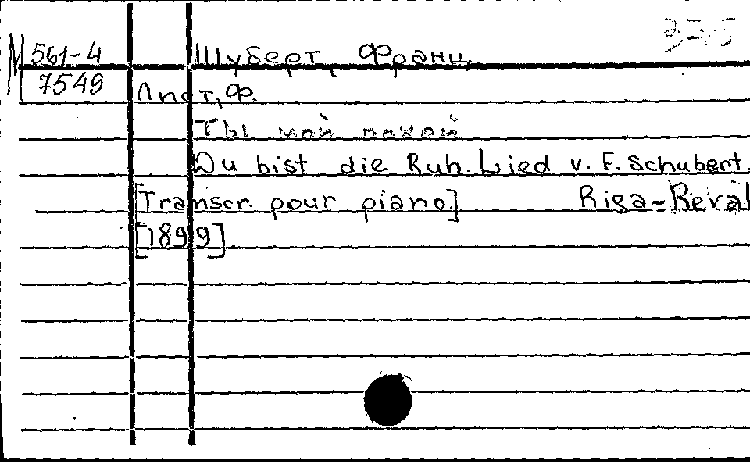 М 561-4
7549
Шуберт, Франц
Лист, Ф.
Ты мой покой
Du bist die Ruh. Lied v. F. Schubert.
[Transcr. pour piano] Riga-Reval
[1899]